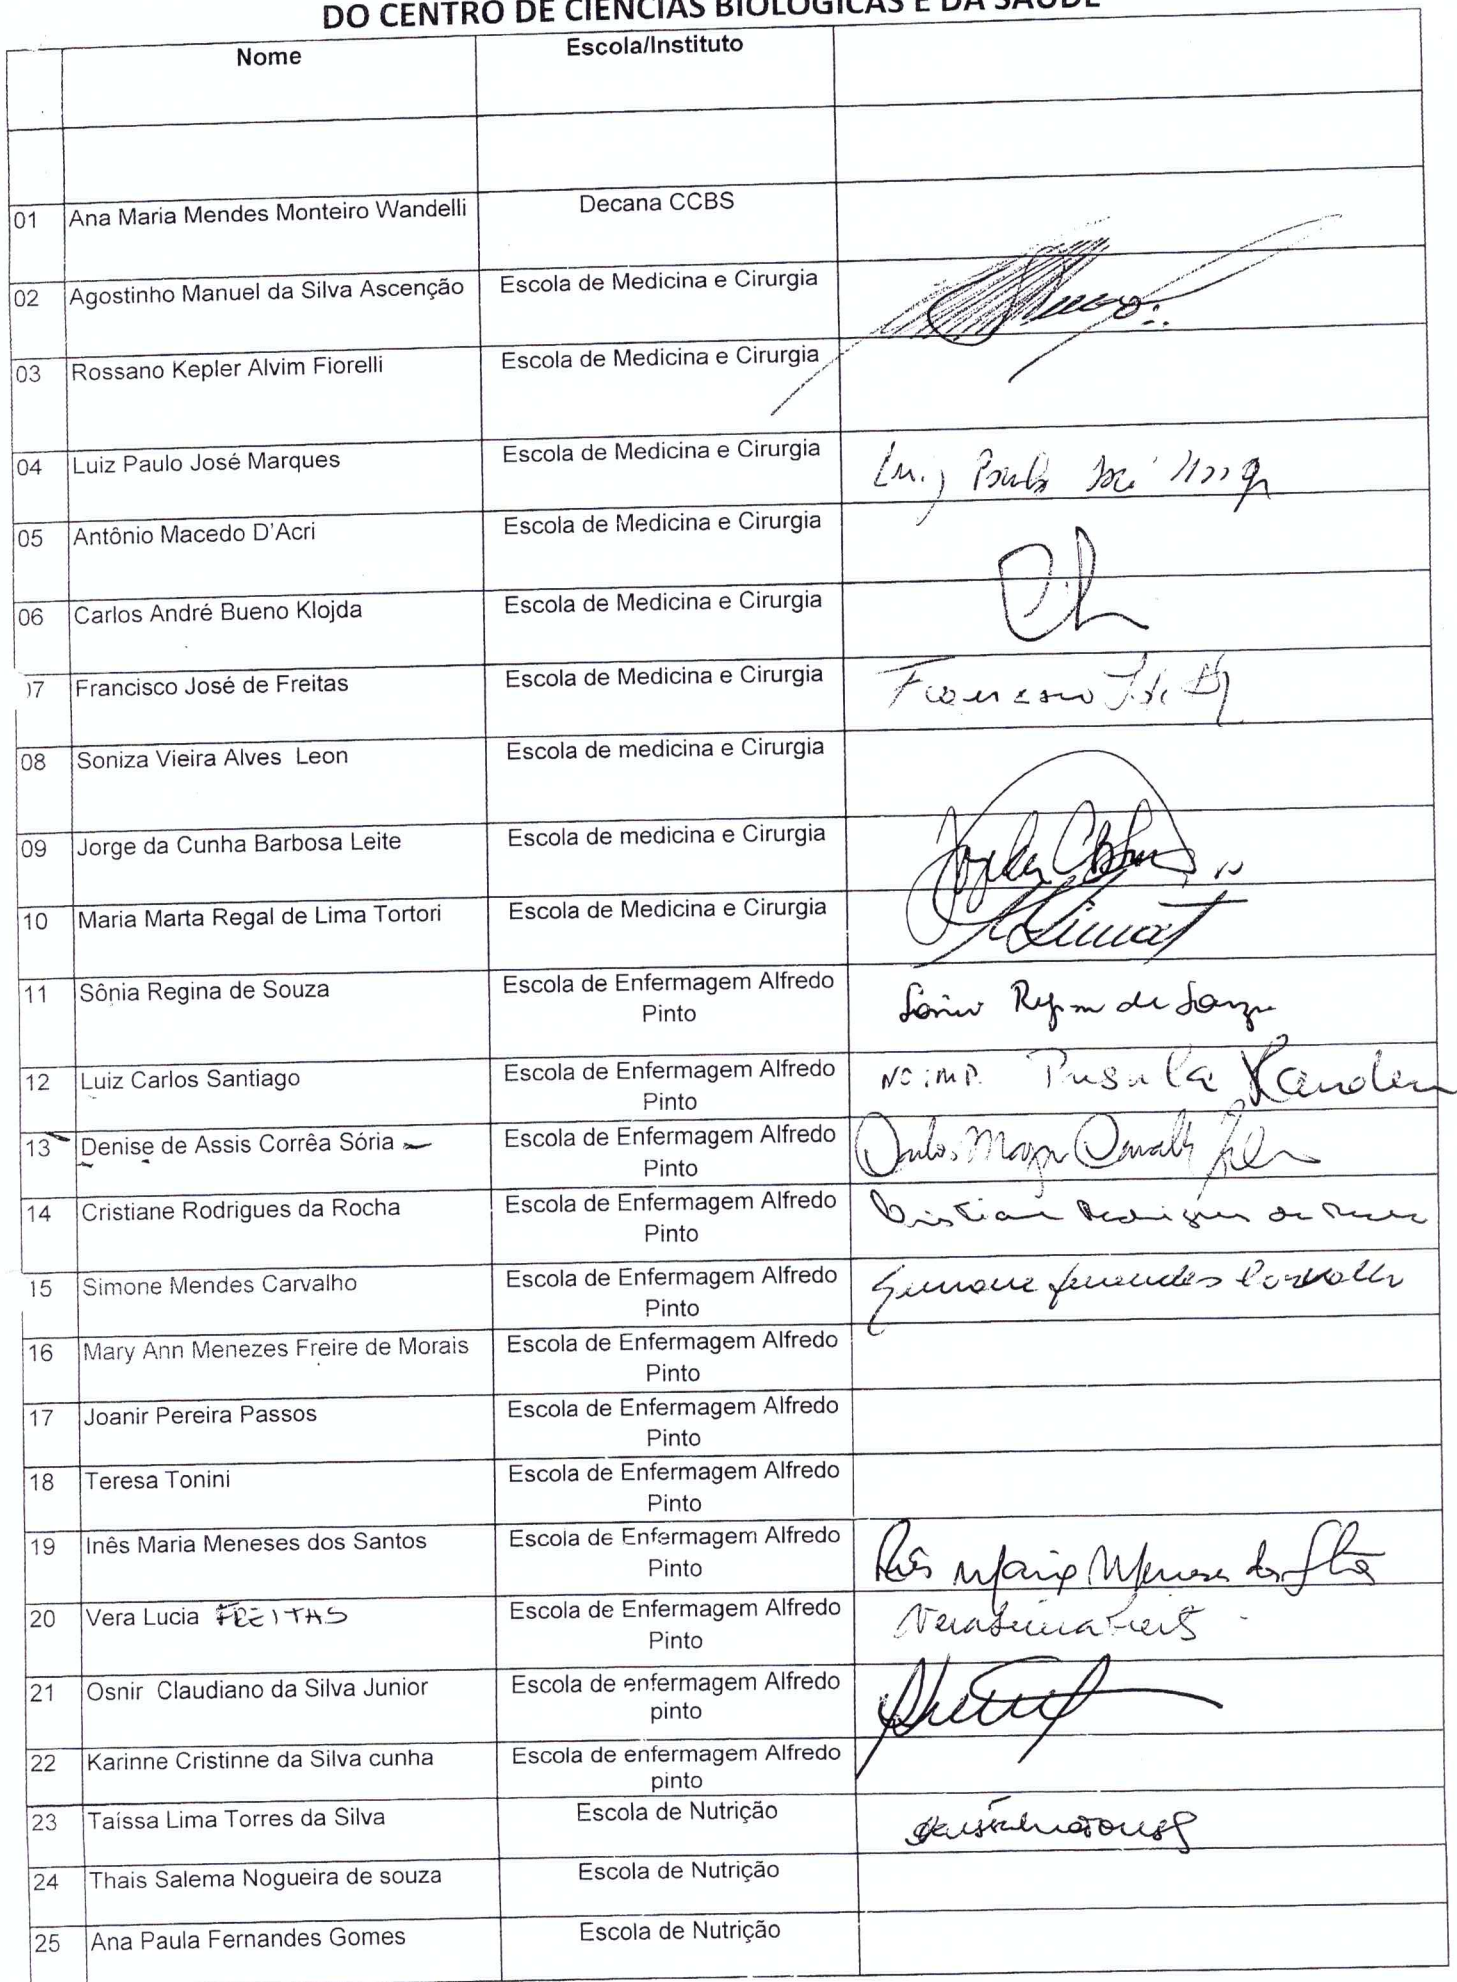 DO CENTRO DE CIÊNCIAS BIOLÓGICAS E DA SAÚDE
Nome Escola/Instituto
01 Ana Maria Mendes Monteiro Wandelli Decana CCBS
02 Agostinho Manuel da Silva Ascenção Escola de Medicina e Cirurgia
03 Rossano Kepler Alvim Fiorelli Escola de Medicina e Cirurgia
04 Luiz Paulo José Marques Escola de Medicina e Cirurgia
05 Antônio Macedo D'Acri Escola de Medicina e Cirurgia
06 Carlos André Bueno Klojda Escola de Medicina e Cirurgia
07 Francisco José de Freitas Escola de Medicina e Cirurgia
08 Soniza Vieira Alves Leon Escola de medicina e Cirurgia
09 Jorge da Cunha Barbosa Leite Escola de medicina e Cirurgia
10 Maria Marta Regal de Lima Tortori Escola de Medicina e Cirurgia
11 Sônia Regina de Souza Escola de Enfermagem Alfredo
Pinto
12 Luiz Carlos Santiago Escola de Enfermagem Alfredo
Pinto
13 Denise de Assis Corrêa Sória Escola de Enfermagem Alfredo
Pinto
14 Cristiane Rodrigues da Rocha Escola de Enfermagem Alfredo
Pinto
15 Simone Mendes Carvalho Escola de Enfermagem Alfredo Simone Mendes Carvalho
Pinto
16 Mary Ann Menezes Freire de Morais Escola de Enfermagem Alfredo
Pinto
17 Joanir Pereira Passos Escola de Enfermagem Alfredo
Pinto
18 Teresa Tonini Escola de Enfermagem Alfredo
Pinto
19 Inês Maria Meneses dos Santos Escola de Enfermagem Alfredo
Pinto
20 Vera Lucia FREITAS Escola de Enfermagem Alfredo
Pinto
21 Osnir Claudiano da Silva Junior Escola de enfermagem Alfredo
pinto
22 Karinne Cristinne da Silva cunha Escola de enfermagem Alfredo
pinto
23 Taíssa Lima Torres da Silva Escola de Nutrição
24 Thais Salema Nogueira de souza Escola de Nutrição
25 Ana Paula Fernandes Gomes Escola de Nutrição